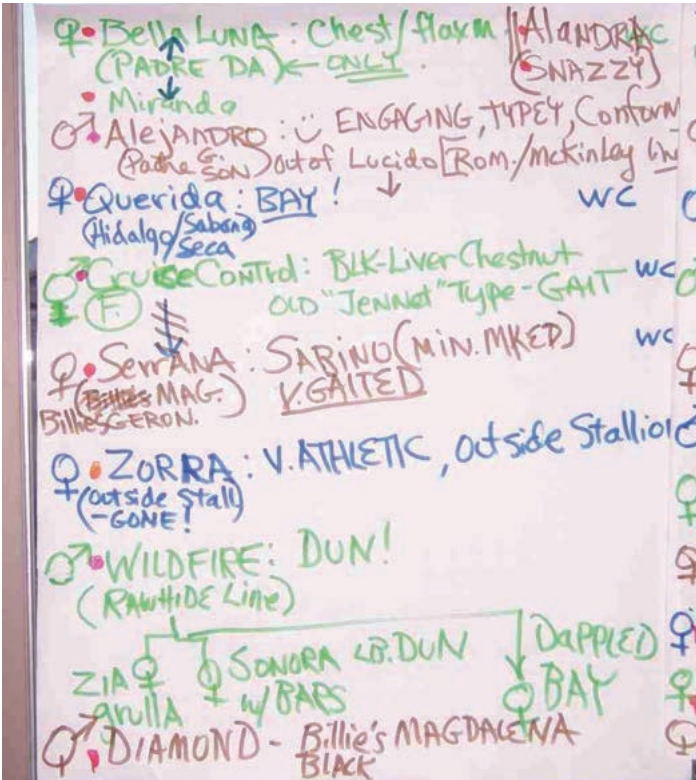 ♀•Bella LUNA : Chest/flaxm || AlANDRA
(PADRE DA)← ONLY. (SNAZZY)
• Miranda
♂•AlejANDRO : ENGAGING, TYPEY, Conform
SON) out of Lucido [Rom./McKinley Lin
♀•Querida : BAY ! WC
(Hidalgo/Sabana)
Seca
♂•CruiseControl : BLK-Liver Chestnut WC
(F.) OLD "JenNet" Type-GAIT
♀•SerrANA : SABINO (MIN. MKED) WC
MAG.) V.GAITED
Billie'sGERON.
♀•ZORRA : V.ATHLETIC, Outside Stallion
(outside Stall)
-GONE!
♂•WILDFIRE: DUN!
(RAWHIDE Line)
ZIA ♀ ♀ SONORA LB.DUN DAPPLED
grullA w/BARS ♀ BAY
♂•DIAMOND - Billie's MAGDALENA
BLACK